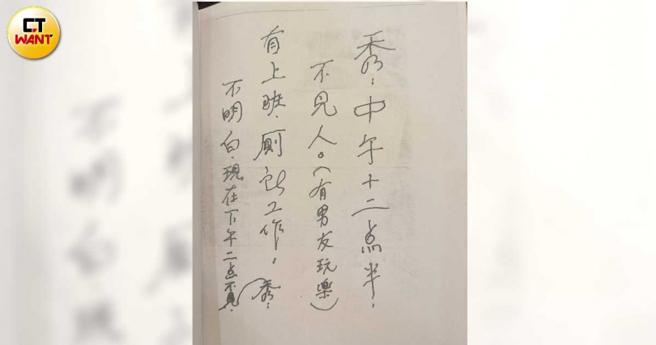 CT
WANT
秀：中午十二点半．
不見人。（有男友玩樂）
有上班．厠所工作．秀．
不明白．現在下午二点不見．